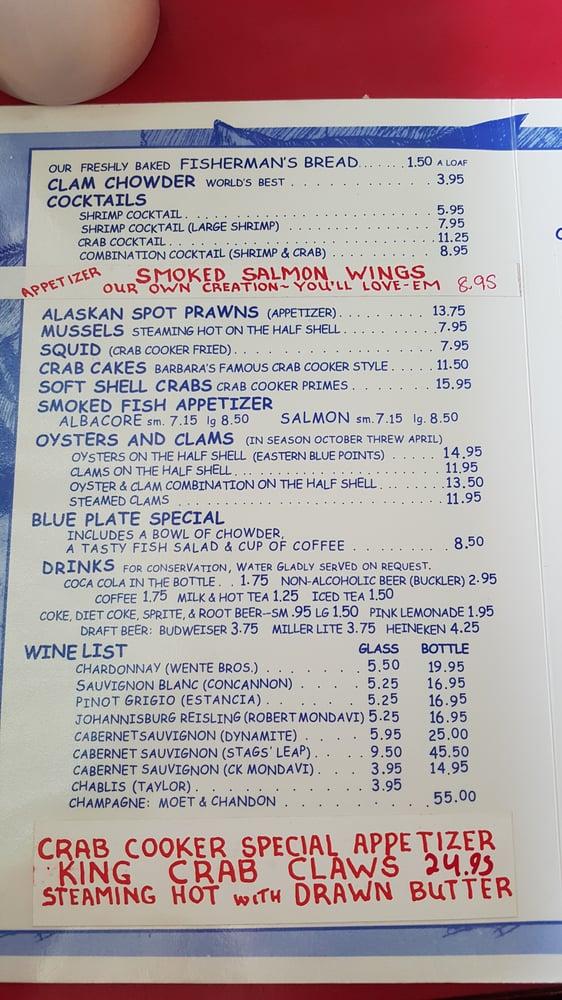 OUR FRESHLY BAKED FISHERMAN'S BREAD......1.50 A LOAF
CLAM CHOWDER WORLD'S BEST . . . . . . . . . . . . . . 3.95
COCKTAILS
SHRIMP COCKTAIL. . . . . . . . . . . . . . . . . . . . . . . . . . 5.95
SHRIMP COCKTAIL (LARGE SHRIMP) . . . . . . . . . . . . . . 7.95
CRAB COCKTAIL. . . . . . . . . . . . . . . . . . . . . . . . . . . 11.25
COMBINATION COCKTAIL (SHRIMP & CRAB) . . . . . . . . . 8.95
APPETIZER SMOKED SALMON WINGS
OUR OWN CREATION~YOU'LL LOVE-EM 8.95
ALASKAN SPOT PRAWNS (APPETIZER). . . . . . . . . . . . 13.75
MUSSELS STEAMING HOT ON THE HALF SHELL. . . . . . . . . . 7.95
SQUID (CRAB COOKER FRIED). . . . . . . . . . . . . . . . . . . 7.95
CRAB CAKES BARBARA'S FAMOUS CRAB COOKER STYLE . . . . . 11.50
SOFT SHELL CRABS CRAB COOKER PRIMES . . . . . . . . 15.95
SMOKED FISH APPETIZER
ALBACORE sm. 7.15 lg 8.50 SALMON sm. 7.15 lg. 8.50
OYSTERS AND CLAMS (IN SEASON OCTOBER THREW APRIL)
OYSTERS ON THE HALF SHELL (EASTERN BLUE POINTS) . . . . . 14.95
CLAMS ON THE HALF SHELL. . . . . . . . . . . . . . . . . . . . . 11.95
OYSTER & CLAM COMBINATION ON THE HALF SHELL. . . . . . . 13.50
STEAMED CLAMS . . . . . . . . . . . . . . . . . . . . . . . . . . 11.95
BLUE PLATE SPECIAL
INCLUDES A BOWL OF CHOWDER,
A TASTY FISH SALAD & CUP OF COFFEE . . . . . . . . . . 8.50
DRINKS FOR CONSERVATION, WATER GLADLY SERVED ON REQUEST.
COCA COLA IN THE BOTTLE. . 1.75 NON-ALCOHOLIC BEER (BUCKLER) 2.95
COFFEE 1.75 MILK & HOT TEA 1.25 ICED TEA 1.50
COKE, DIET COKE, SPRITE, & ROOT BEER--SM .95 LG 1.50 PINK LEMONADE 1.95
DRAFT BEER: BUDWEISER 3.75 MILLER LITE 3.75 HEINEKEN 4.25
WINE LIST GLASS BOTTLE
CHARDONNAY (WENTE BROS.) . . . . . . . . 5.50 19.95
SAUVIGNON BLANC (CONCANNON) . . . . . 5.25 16.95
PINOT GRIGIO (ESTANCIA) . . . . . . . . 5.25 16.95
JOHANNISBURG REISLING (ROBERT MONDAVI) 5.25 16.95
CABERNET SAUVIGNON (DYNAMITE) . . . . . 5.95 25.00
CABERNET SAUVIGNON (STAGS' LEAP). . . . . 9.50 45.50
CABERNET SAUVIGNON (CK MONDAVI). . . . 3.95 14.95
CHABLIS (TAYLOR). . . . . . . . . . . . . 3.95
CHAMPAGNE: MOET & CHANDON . . . . . . . . . . . 55.00
CRAB COOKER SPECIAL APPETIZER
KING CRAB CLAWS 24.95
STEAMING HOT WITH DRAWN BUTTER